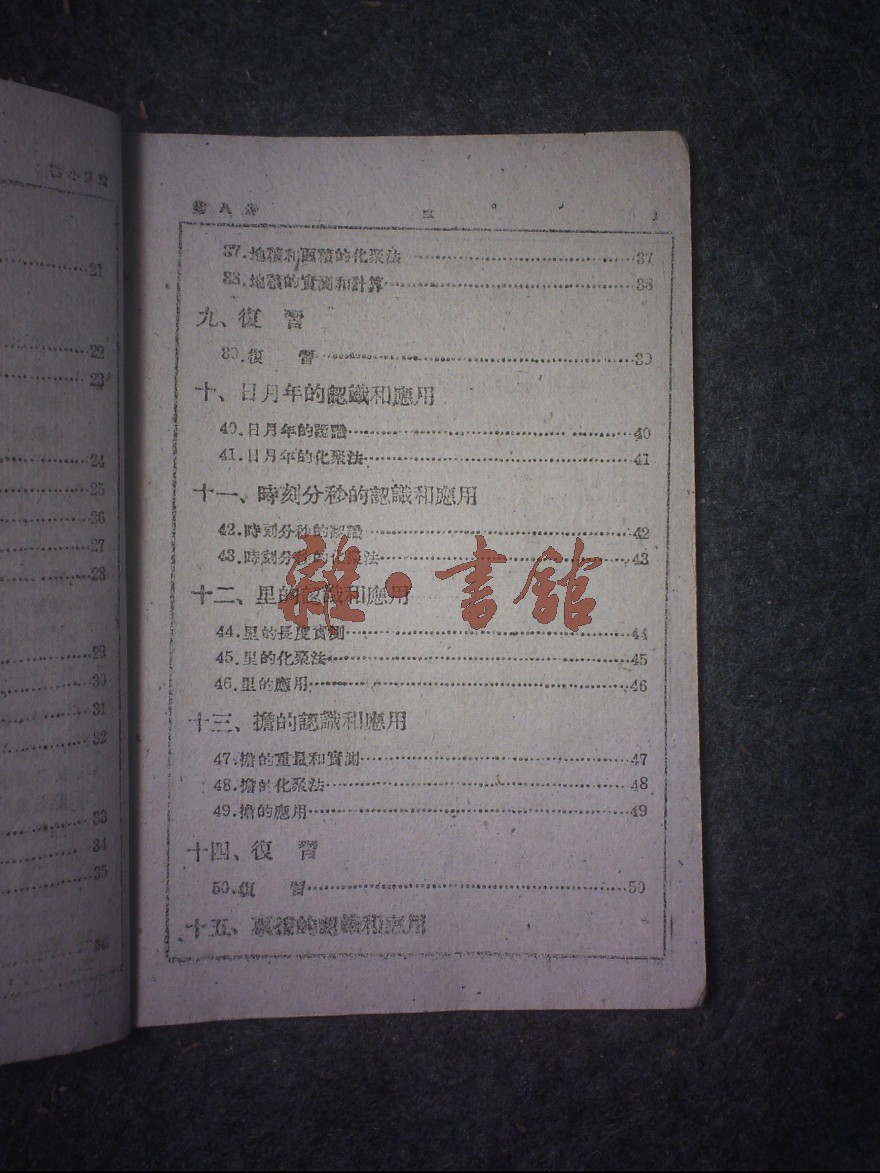 21
22
23
24
25
26
27
28
29
30
31
32
33
34
35
36
第八册
37.地積和面積的化聚法 37
38.地積的實測和計算 38
九、復習
39.復習 39
十、日月年的認識和應用
40.日月年的認識 40
41.日月年的化聚法 41
十一、時刻分秒的認識和應用
42.時刻分秒的認識 42
43.時刻分秒的化聚法 43
十二、里的認識和應用
44.里的長度實測 44
45.里的化聚法 45
46.里的應用 46
十三、擔的認識和應用
47.擔的重量和實測 47
48.擔的化聚法 48
49.擔的應用 49
十四、復習
50.復習 50
十五、的認識和應用
雜·書館